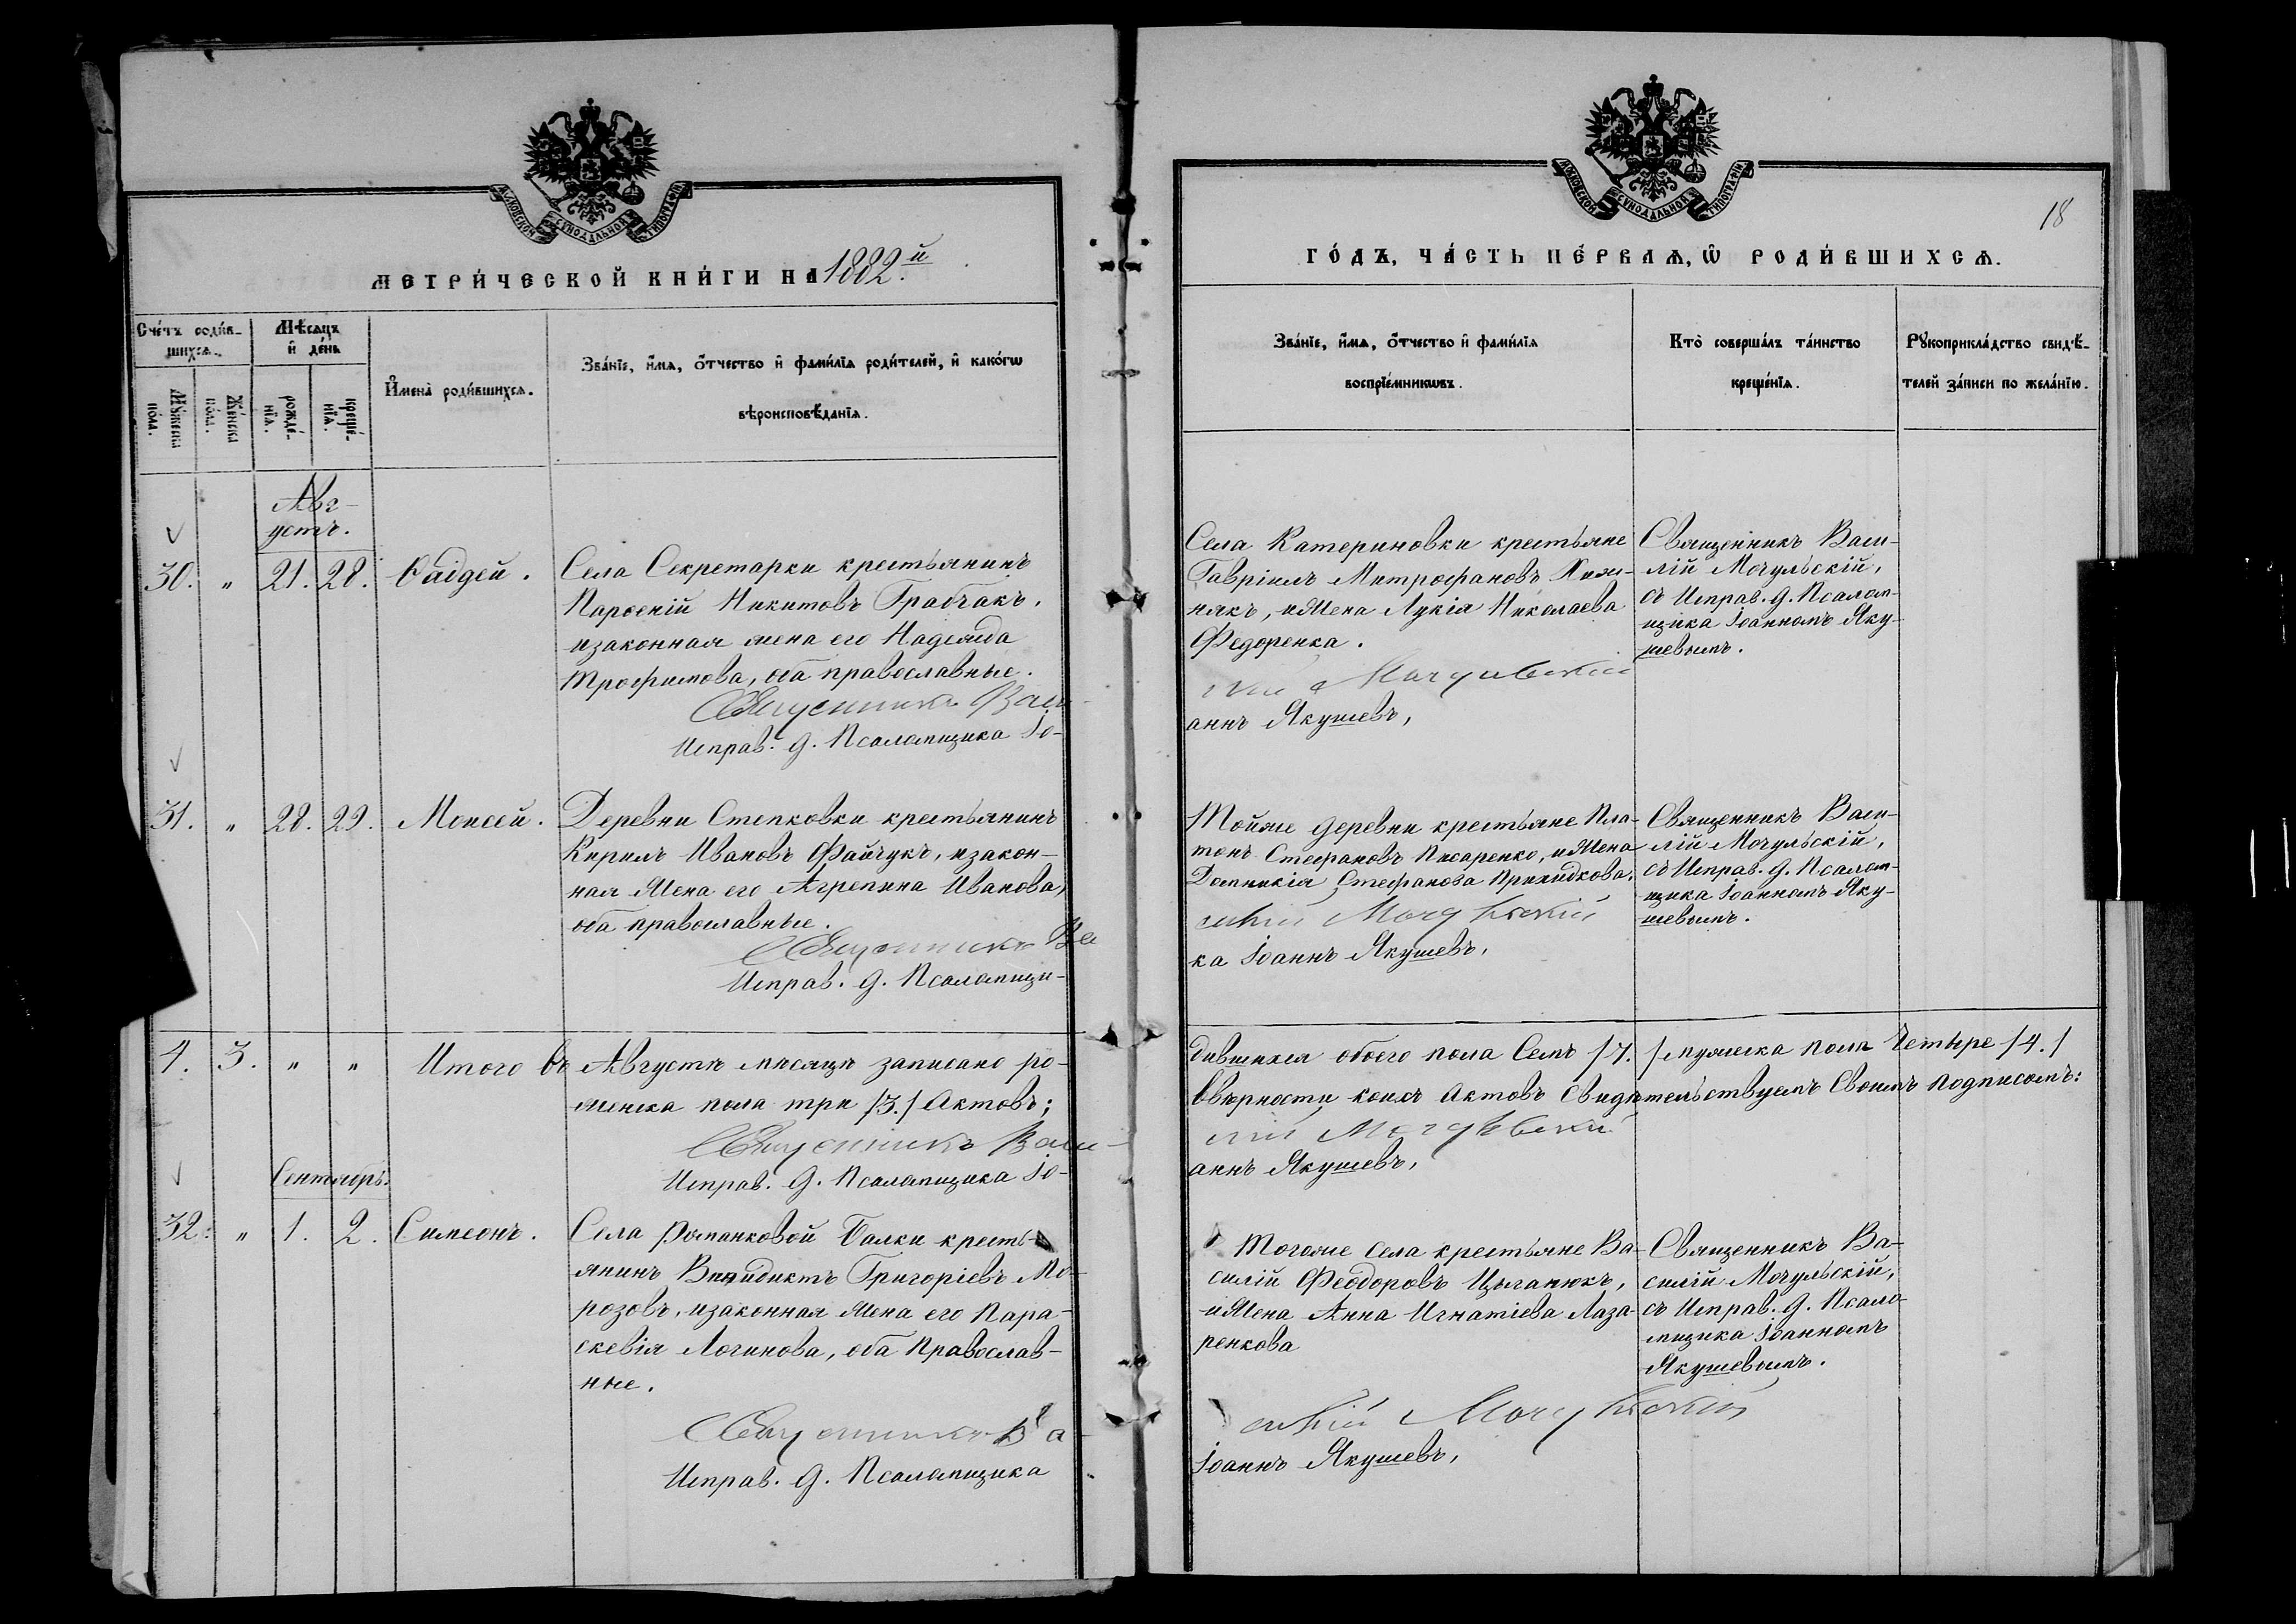 МЕТРИ́ЧЕСКОЙ КНИ́ГИ НА 1882.й
Сче́тъ роди́в-
шихсѧ.
Мѣ́сѧцъ
и҆ де́нь
Му́жеска
по́ла.
Же́нска
по́ла.
рожде́-
нїѧ.
креще́-
нїѧ.
И҆мена̀ роди́вшихсѧ.
Зва́нїе, и҆́мѧ, ѻ҆́тчество и҆ фами́лїѧ роди́телей, и҆ како́гѡ
вѣроисповѣ́данїѧ.
Авг-
устъ.
30. " 21. 28. Ѳаідей. Села Секретарки крестьянинъ
Парѳеній Никитовъ Грабчакъ,
изаконная жена его Надежда
Трофимова, оба православные.
Священникъ Васи-
Исправ. д. Псаломщика Іо-
31. " 28. 29. Моисей. Деревни Степковки крестьянинъ
Кирилъ Ивановъ Файчукъ, изакон-
ная жена его Агрепина Иванова,
оба православные.
Священникъ Ва
Исправ. д. Псаломщи-
4. 3. " " Итого въ Августѣ мѣсяцѣ записано ро-
женска пола три /3./ Актовъ;
Священникъ Васи-
Исправ. д. Псаломщика Іо-
Сентябрь.
32. " 1. 2. Симеонъ. Села Романковой Балки кресть-
янинъ Винидиктъ Григоріевъ Мо-
розовъ, изаконная жена его Пара-
скевія Логинова, оба Православ-
ные.
Священникъ Ва-
Исправ. д. Псаломщика
18
ГО́ДЪ, ЧА́СТЬ ПЕ́РВАѦ, Ѡ҆ РОДИ́ВШИХСѦ.
Зва́нїе, и҆́мѧ, ѻ҆́тчество и҆ фами́лїѧ
воспрїе́мникѡвъ.
Кто̀ соверша́лъ та́инство
креще́нїѧ.
Рꙋкоприкла́дство свидѣ́-
телей за́писи по жела́нїю.
Села Катериновки крестьяне
Гавріилъ Митрофановъ
някъ, ижена Лукія Николаева
Федоренка.
Мочульскій
аннъ Якушевъ,
Священникъ Васи-
лій Мочульскій,
съ Исправ. д. Псалом-
щика Іоанномъ Яку-
шевымъ.
Тойже деревни крестьяне Пла-
тонъ Стефановъ Писаренко, ижена
Домникія Стефанова Приходкова.
силій Мочульскій
ка Іоаннъ Якушевъ,
Священникъ Васи-
лій Мочульскій,
съ Исправ. д. Псалом-
щика Іоанномъ Яку-
шевымъ.
дившихся обоего пола Семь /7./ мужеска пола Четыре /4./
Ввѣрности коихъ Актовъ Свидѣтельствуемъ Своимъ подписомъ:
лій Мочульскій
аннъ Якушевъ,
Тогоже села крестьяне Ва-
силій Феодоровъ Цыганюкъ,
ижена Анна Игнатіева Лаза-
ренкова
силій Мочульскій
Іоаннъ Якушевъ,
Священникъ Ва-
силій Мочульскій,
съ Исправ. д. Псало-
мщика Іоанномъ
Якушевымъ.